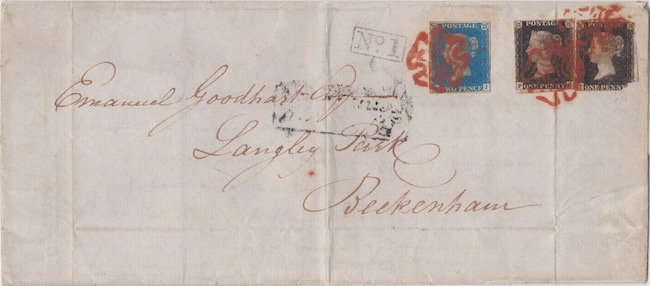 POSTAGE
TWO PENCE
POSTAGE
ONE PENNY
ONE PENNY
No 1
Emanuel Goodhart Esq
Langley Park
Beckenham